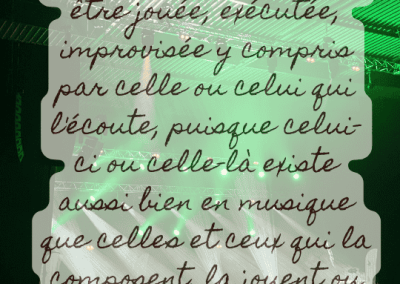 être jouée, exécutée,
improvisée y compris
par celle ou celui qui
l'écoute, puisque celui-
ci ou celle-là existe
aussi bien en musique
que celles et ceux qui la
composent, la jouent ou